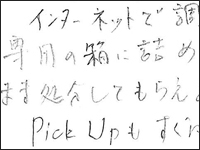 インターネットで調
専用の箱に詰め
まま処分してもらえ
Pick Upもすぐに